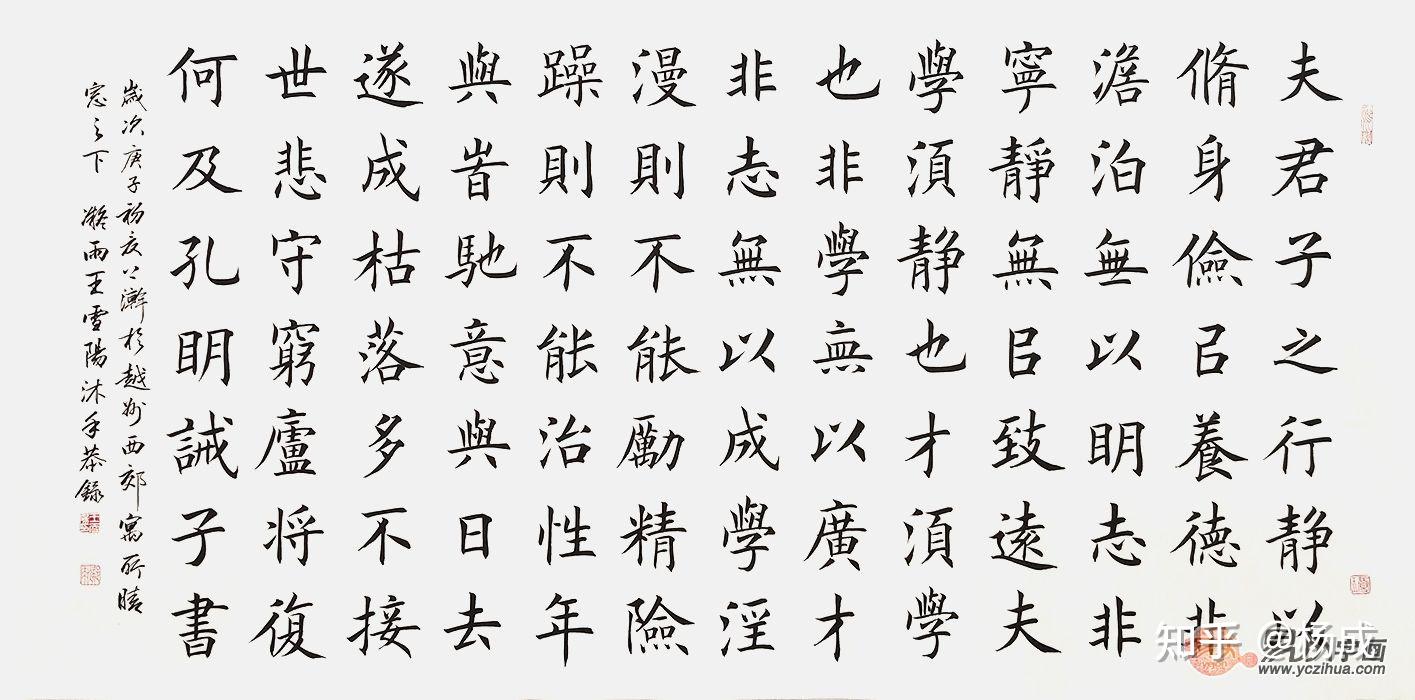 夫君子之行静以
脩身儉㠯養德非
澹泊無以眀志非
寧靜無㠯致遠夫
學須静也才須學
也非學無以廣才
非志無以成學淫
漫則不能勵精險
躁則不能治性年
與旹馳意與日去
遂成枯落多不接
世悲守窮廬将復
何及孔眀誡子書
歲次庚子初夏上澣於越州西郊寓所晴
窓之下 凝雨王雪陽沐手恭錄
知乎 @杨成
www.yczihua.com